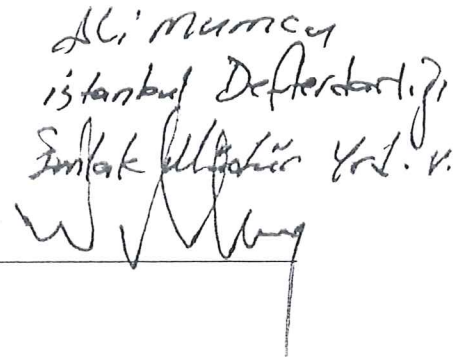 Ali Mumcu
İstanbul Defterdarlığı
Emlak Müdür Yrd. V.